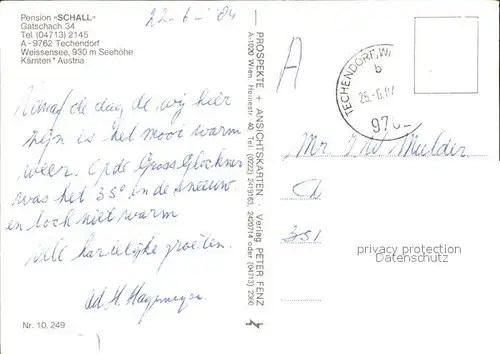 Pension »SCHALL«
Gatschach 34
Tel. (04713) 2145
A-9762 Techendorf
Weissensee, 930 m Seehöhe
Kärnten * Austria
22-6-'84
Vanaf de dag de wij hier
zijn is het mooi warm
weer. Op de Gross Glockner
was het 35° in de sneeuw
en toch niet warm
Vele hartelijke groeten.
Nr. 10.249
PROSPEKTE + ANSICHTSKARTEN · Verlag PETER FENZ
A-1020 Wien, Heinestr. 40, Tel. (0222) 2419163, 2420714 oder (04713) 2560
A
TECHENDORF, W
b
25.-6.
976
Mr. Mulder
351
protected by copyright
Datenschutz